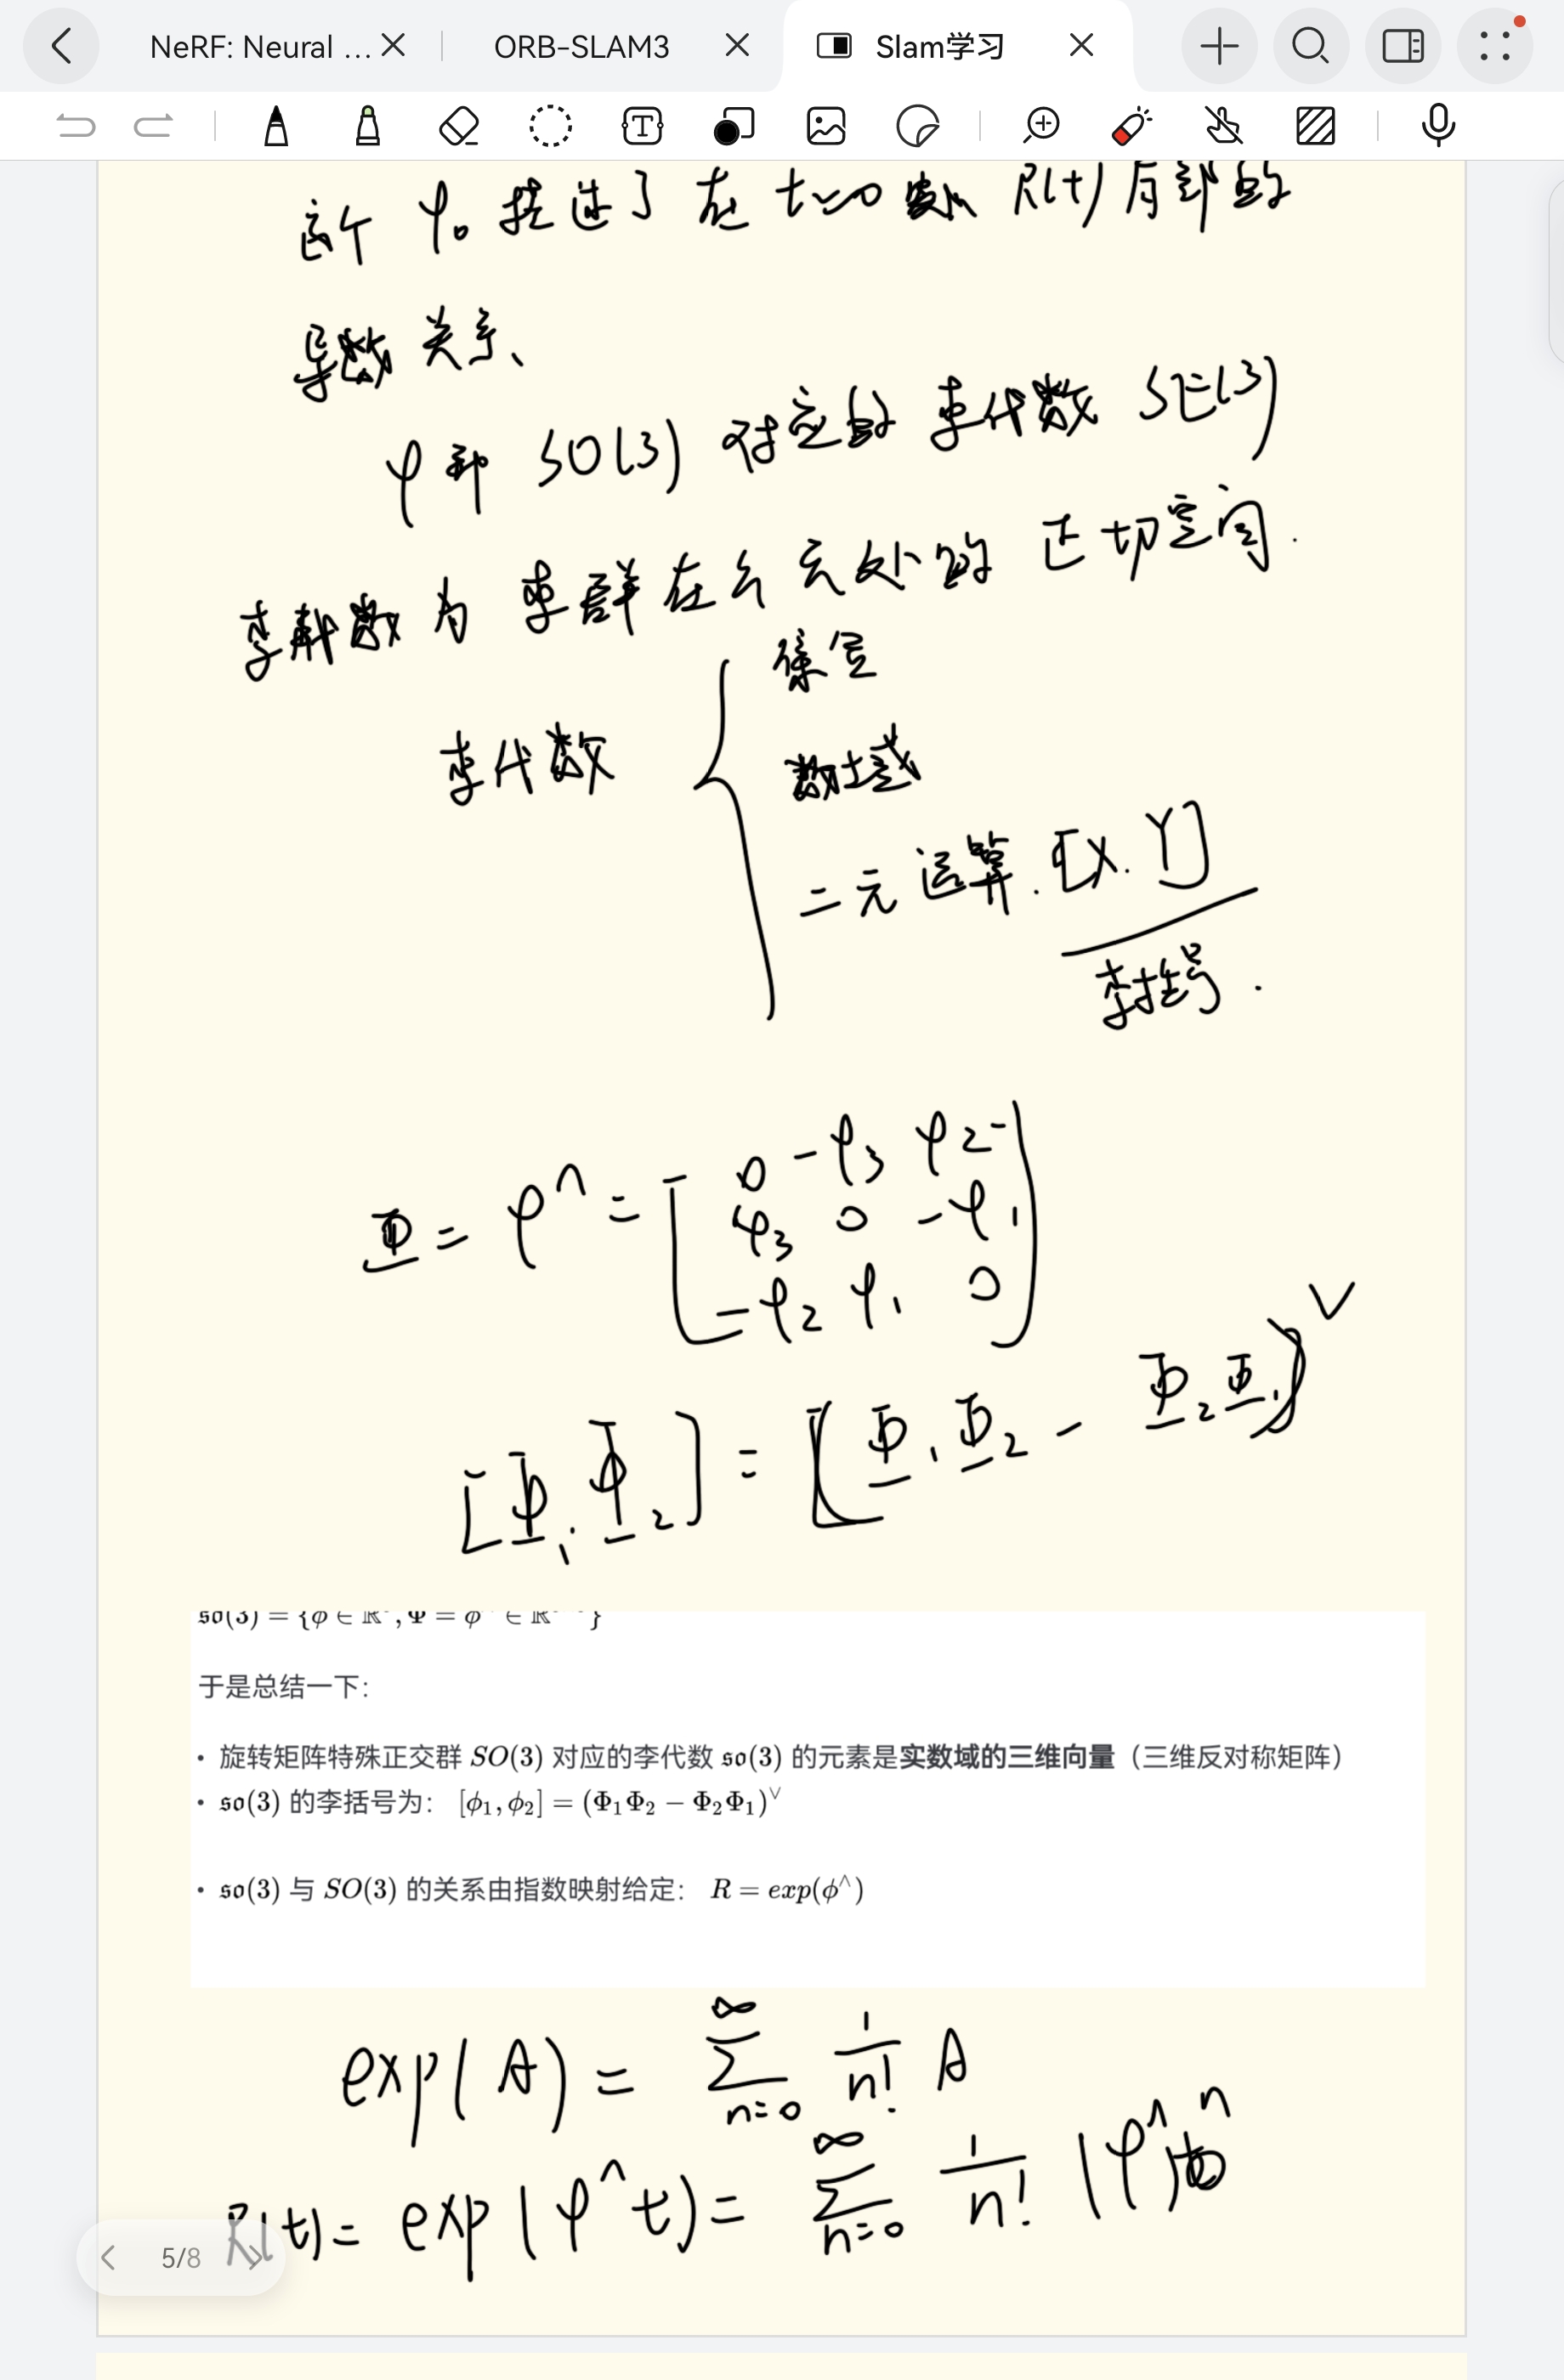 NeRF: Neural ...
ORB-SLAM3
Slam学习
这个 φ₀ 描述了在 t=0 R(t) 局部的
导数关系、
φ 即 SO(3) 对应的李代数 SE(3)
李代数为李群在幺元处的正切空间.
李代数
集合
数域
二元运算. [X. Y]
李括号.
Φ = φ^ = [ 0 -φ3 φ2
φ3 0 -φ1
-φ2 φ1 0 ]
[Φ1, Φ2] = (Φ1Φ2 - Φ2Φ1)∨
于是总结一下：
• 旋转矩阵特殊正交群 SO(3) 对应的李代数 𝔰𝔬(3) 的元素是实数域的三维向量（三维反对称矩阵）
• 𝔰𝔬(3) 的李括号为： [ϕ₁, ϕ₂] = (Φ₁Φ₂ − Φ₂Φ₁)∨
• 𝔰𝔬(3) 与 SO(3) 的关系由指数映射给定： R = exp(ϕ^)
exp(A) = ∑ n=0 ∞ 1/n! A
R(t) = exp(φ^t) = ∑ n=0 ∞ 1/n! (φ^)ⁿ
5/8